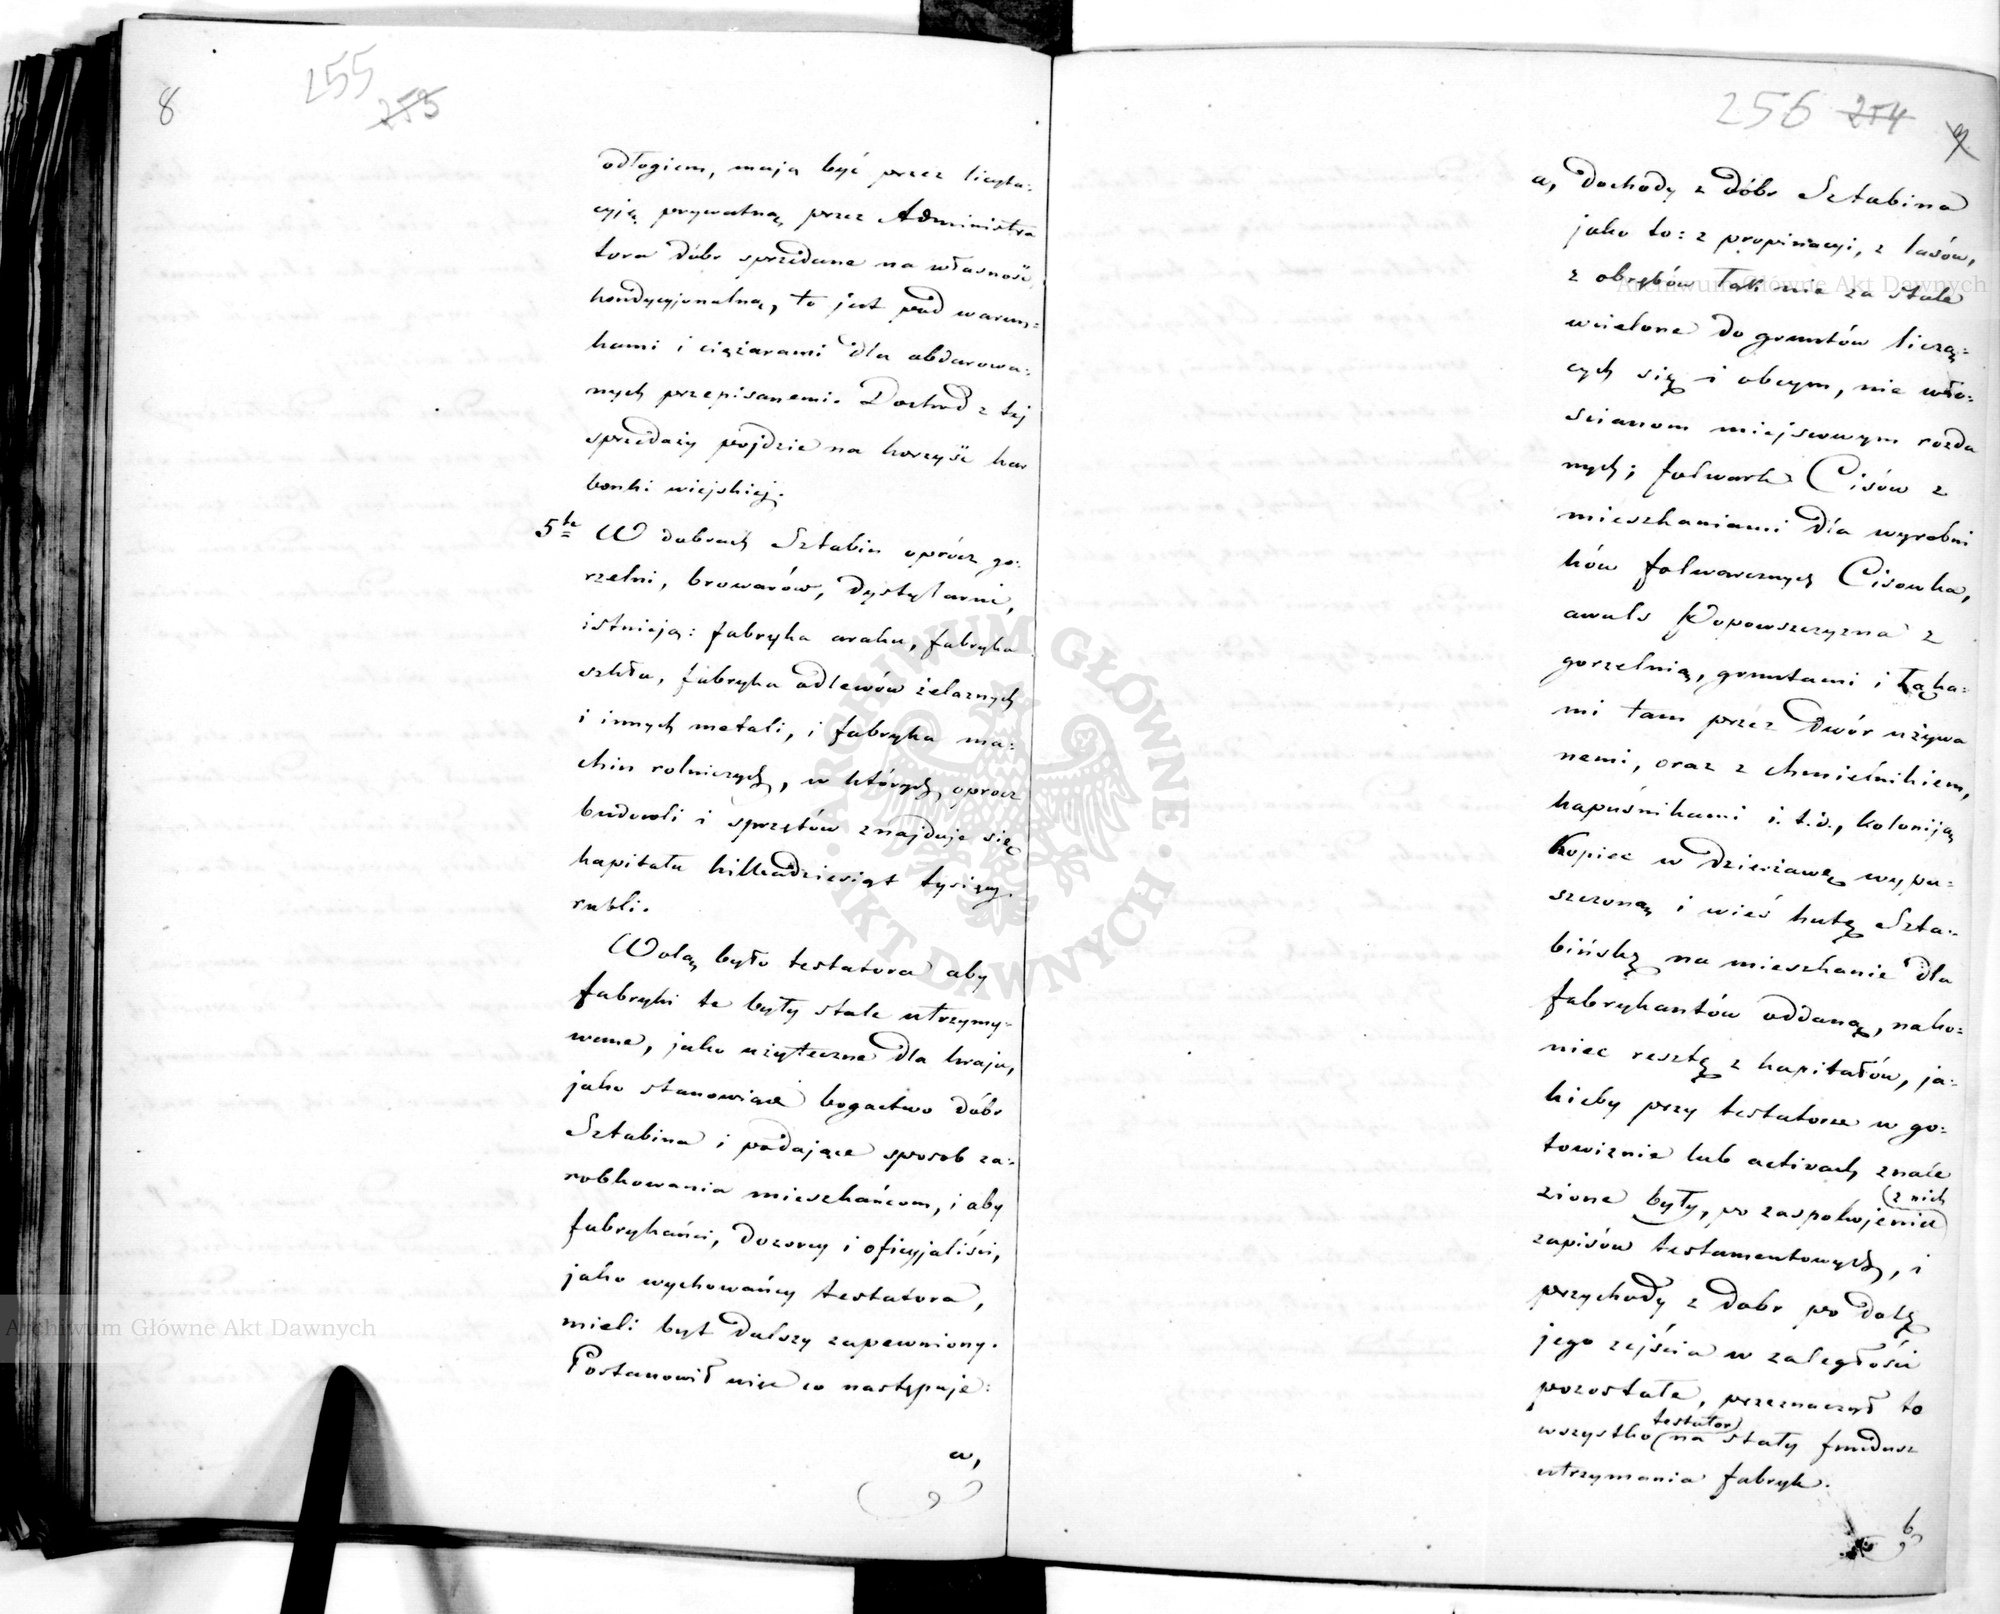 8
255
253
odłogiem, mają być przez licyta:
cyją prywatną, przez Administra
tora dóbr sprzedane na własność
kondycyjonalną, to jest pod warun:
kami i ciężarami dla obdarowa:
nych przepisanemi. Dochód z tej
sprzedaży pojdzie na korzyść kar
bonki wiejskiej.
5te W dobrach Sztabin oprócz go:
rzelni, browarów, dystylarni,
istnieją: fabryka araku, fabryka
szkła, fabryka odlewów żelaznych
i innych metali, i fabryka ma:
chin rolniczych, w których oprócz
budowli i sprzętów znajduje się
kapitału kilkadziesiąt tysięcy
rubli.
Wolą było testatora aby
fabryki te były stale utrzymy:
wane, jako użyteczne dla kraju,
jako stanowiące bogactwo dóbr
Sztabina i podające sposob za:
robkowania mieszkańcom, i aby
fabrykańci, dozorcy i oficyjaliści,
jako wychowańcy testatora,
mieli byt dalszy zapewniony.
Postanowił więc co następuje:
a,
256 254
9
a, dochody z dóbr Sztabina
jako to: z propinacyi, z lasów,
z obrębów łąk nie za stale
wcielone do gruntów liczą:
cych się i obcym, nie wło:
scianom miejscowym rozda
nych; folwark Cisów z
mieszkaniami dla wyrobni
ków folwarcznych Cisowka,
awuls Popowszczyzna z
gorzelnią, gruntami i łąka:
mi tam przez dwór używa
nemi, oraz z chmielnikiem,
kapuśnikami i. t. d., koloniją
Kopiec w dzierżawę wypu:
szczoną i wieś hutę Szta:
bińską na mieszkanie dla
fabrykantów oddaną, nako:
niec resztę z kapitałów, ja:
kieby przy testatorze w go:
towiznie lub activach znale
zione były, po zaspokojeniu (z nich)
zapisów testamentowych, i
przychody z dobr po datę
jego zejścia w zaległości
pozostałe, przeznaczył to
wszystko (testator) na stały fundusz
utrzymania fabryk.
b,
ARCHIWUM GŁÓWNE AKT DAWNYCH
Archiwum Główne Akt Dawnych
Archiwum Główne Akt Dawnych